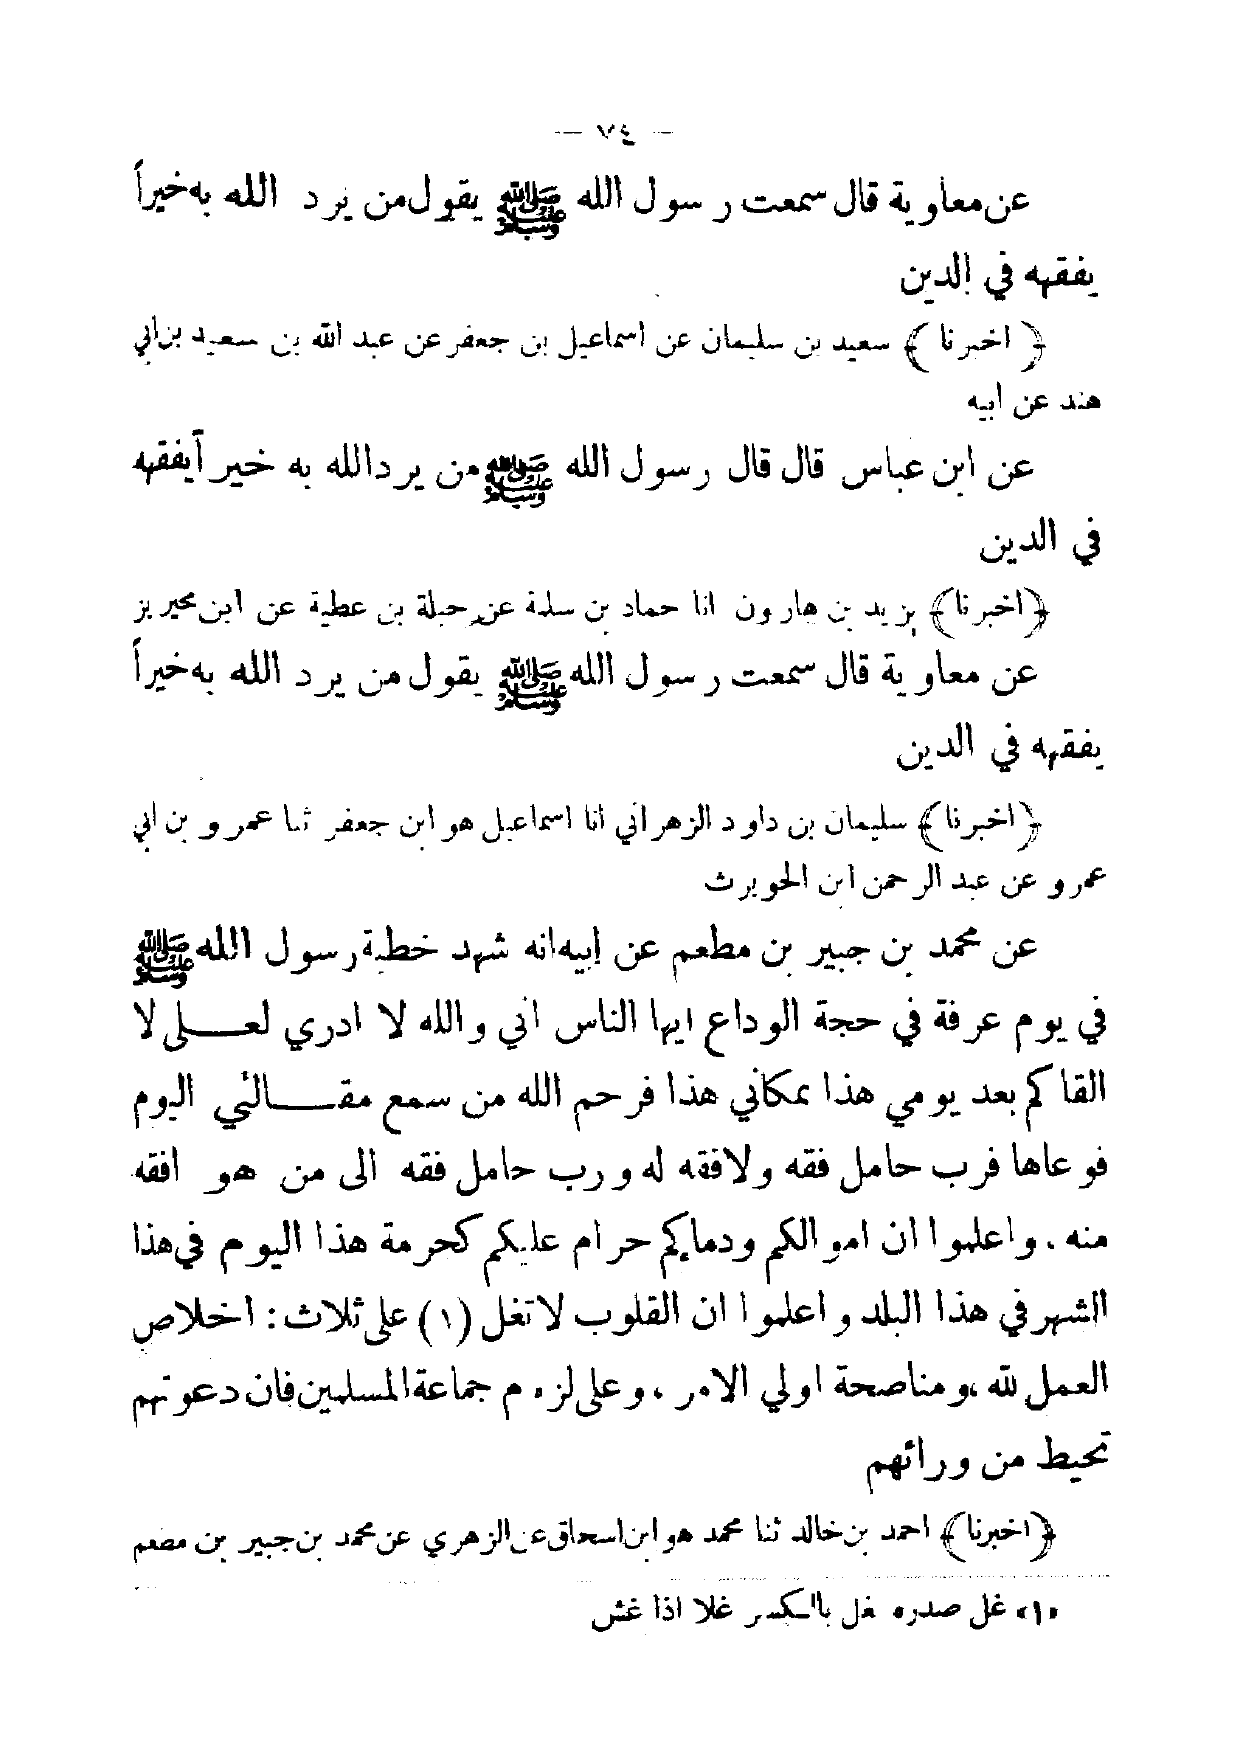 — ٧٤ —
عن معاوية قال سمعت رسول الله ﷺ يقول من يرد الله به خيراً
يفقهه في الدين
﴿ اخبرنا ﴾ سعيد بن سليمان عن اسماعيل بن جعفر عن عبد الله بن سعيد بن ابي
هند عن ابيه
عن ابن عباس قال قال رسول الله ﷺ من يرد الله به خيراً يفقهه
في الدين
﴿اخبرنا﴾ يزيد بن هارون انا حماد بن سلمة عن جبلة بن عطية عن ابن محيريز
عن معاوية قال سمعت رسول الله ﷺ يقول من يرد الله به خيراً
يفقهه في الدين
﴿اخبرنا﴾ سليمان بن داود الزهراني انا اسماعيل هو ابن جعفر ثنا عمرو بن ابي
عمرو عن عبد الرحمن ابن الحويرث
عن محمد بن جبير بن مطعم عن إبيه انه شهد خطبة رسول الله ﷺ
في يوم عرفة في حجة الوداع ايها الناس اني والله لا ادري لعلي لا
القاكم بعد يومي هذا بمكاني هذا فرحم الله من سمع مقالتي اليوم
فوعاها فرب حامل فقه ولا فقه له ورب حامل فقه الى من هو افقه
منه . واعلموا ان اموالكم ودماءكم حرام عليكم كحرمة هذا اليوم في هذا
الشهر في هذا البلد واعلموا ان القلوب لا تغل (١) على ثلاث : اخلاص
العمل لله، ومناصحة اولي الامر، وعلى لزوم جماعة المسلمين فان دعوتهم
تحيط من ورائهم
﴿اخبرنا﴾ احمد بن خالد ثنا محمد هو ابن اسحاق عن الزهري عن محمد بن جبير بن مطعم
«١» غل صدره يغل بالكسر غلا اذا غش